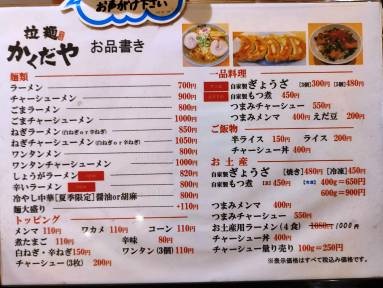 お声がけ下さい
拉麺
かくだや お品書き
麺類
ラーメン 700円
チャーシューメン 900円
ごまラーメン 800円
ごまチャーシューメン 1000円
ねぎラーメン(白ねぎor辛ねぎ) 850円
ねぎチャーシューメン(白ねぎor辛ねぎ) 1050円
ワンタンメン 800円
ワンタンチャーシューメン 1000円
しょうがラーメン 820円
辛いラーメン 800円
冷やし中華[夏季限定]醤油or胡麻 800円
麺大盛り +110円
トッピング
メンマ 110円 ワカメ 110円 コーン 110円
煮たまご 110円 辛味 80円
白ねぎ・辛ねぎ150円 ワンタン(3個)110円
チャーシュー(3枚) 200円
一品料理
自家製ぎょうざ [3個]300円 [5個]480円
自家製もつ煮 450円
つまみチャーシュー 550円
つまみメンマ 400円 えだ豆 200円
ご飯物
半ライス 150円 ライス 200円
チャーシュー丼 400円
お土産
自家製ぎょうざ [焼き]480円 [冷凍]450円
自家製もつ煮 450円 400g=650円
600g=900円
つまみメンマ 400円
つまみチャーシュー 550円
お土産用ラーメン(4食) 1050円 1000円
チャーシュー丼 400円
チャーシュー量り売り 100g=250円
※表示価格はすべて税込み価格です。